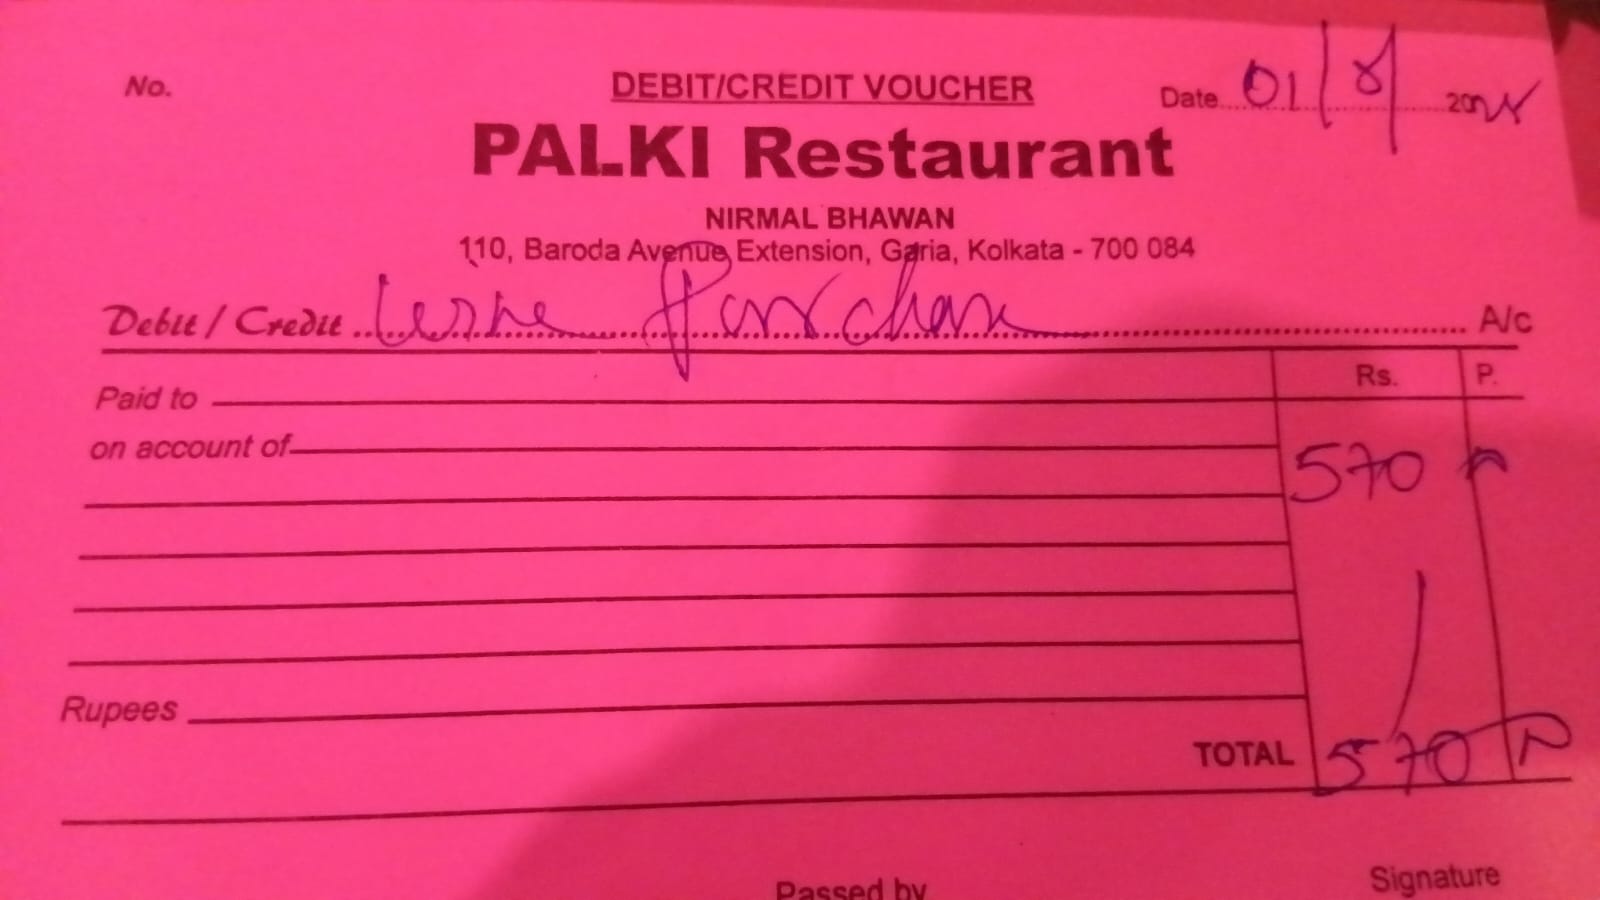 No. DEBIT/CREDIT VOUCHER Date 01/8/ 20
PALKI Restaurant
NIRMAL BHAWAN
110, Baroda Avenue Extension, Garia, Kolkata - 700 084
Debit / Credit A/c
Rs. P.
Paid to
on account of
570
Rupees
TOTAL 570
Passed by Signature